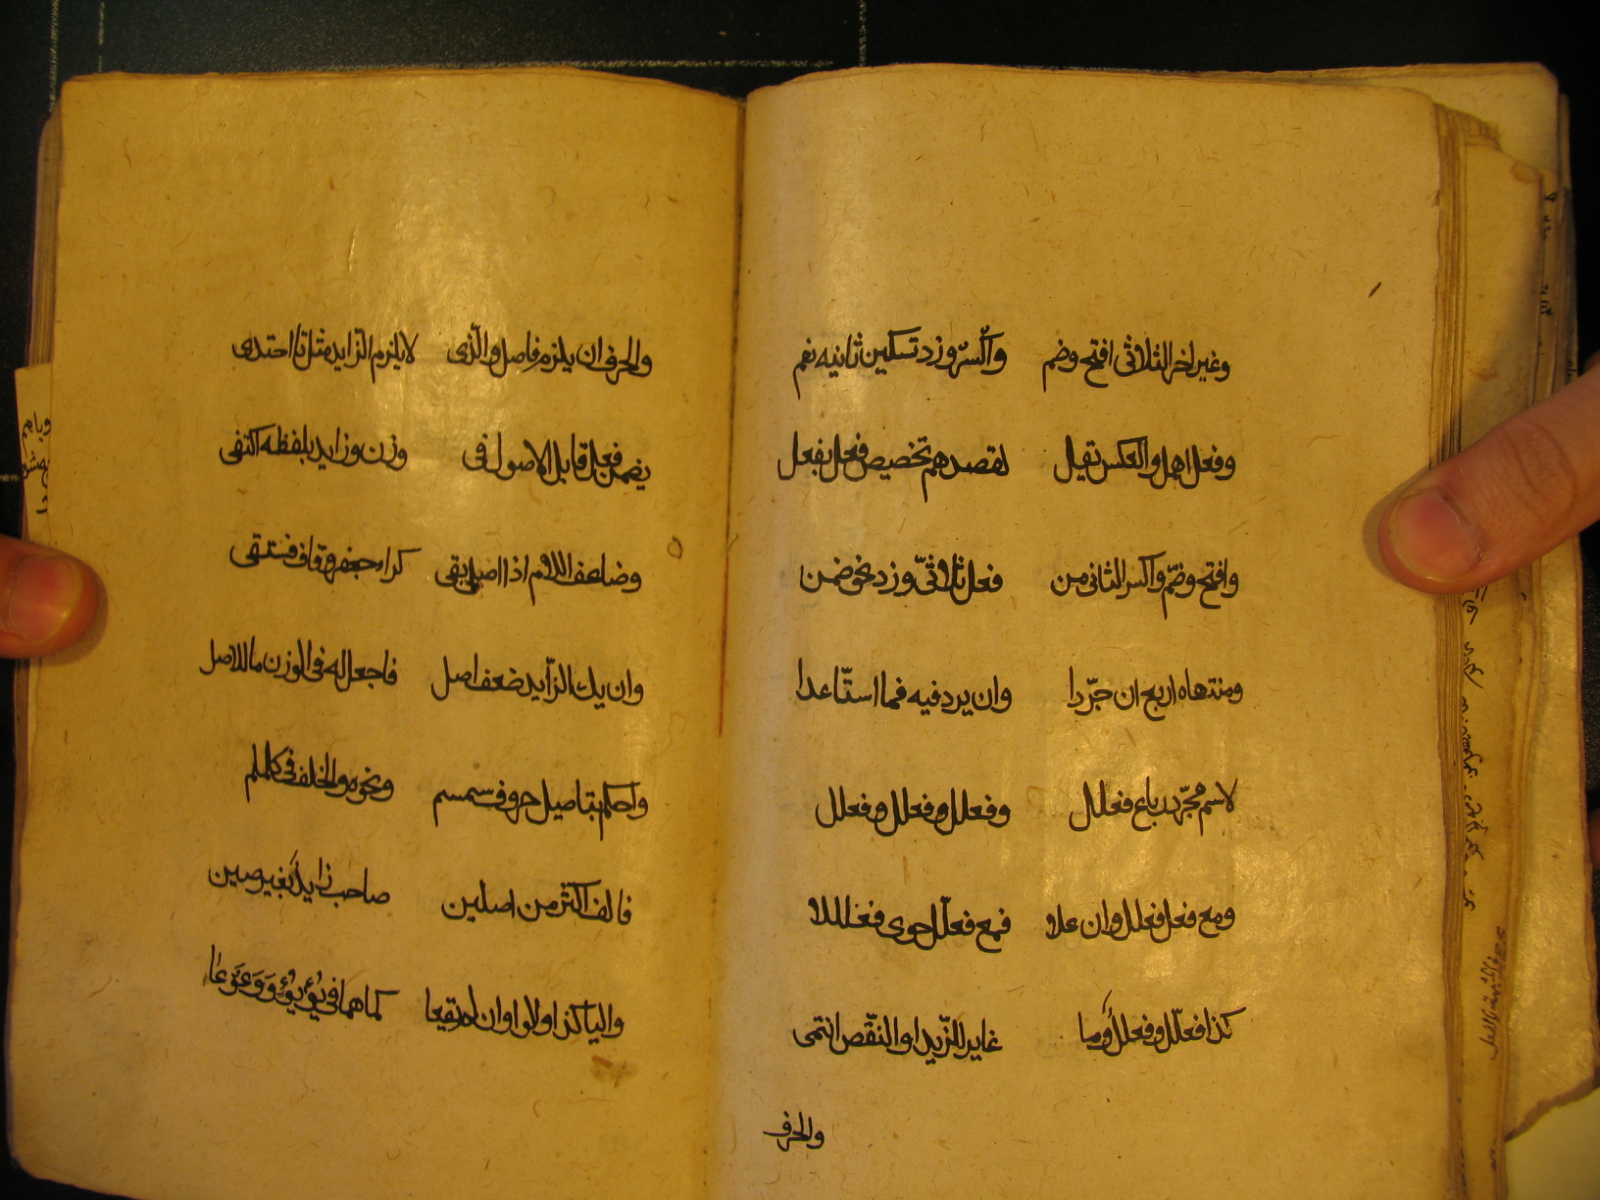 وغير اخر الثلاثي افتح وضم واكسر وزد تسكين ثانيه نعم
وفعل اهمل والعكس يقيل لقصدهم تخصيص فعل بفعل
وافتح وضم واكسر الثاني من فعل ثلاثيّ وزد نحو ضمن
ومنتهاه اربع ان جرّدا وان يرد فيه فما استّا عدا
لاسم مجرّد رباع فعلل وفعلل وفعلل وفعلل
ومع فعل فعلل وان علا فمع فعلّل حوى فعلللا
كذا فعلّل وفعلل وما غاير للزّيد او النقّص انتمى
والحرف
والحرف ان يلزم فاصل والّذي لا يلزم الزّايد مثل تا احتدى
بضمن فعل قابل الاصول في وزن وزايد بلفظه اكتفى
وضاعف اللام اذا اصل بقى كراء جعفر وقاف فستقى
وان يك الزّايد ضعف اصل فاجعل له في الوزن ما للاصل
واحكم بتاصيل حروف سمسم ونحوه والخلف في كالملم
فالف اكثر من اصلين صاحب زايد بغير مين
واليا كذا ولاواو ان لم يقعا كما هما في يُؤيُؤ وَوَعوَعَا